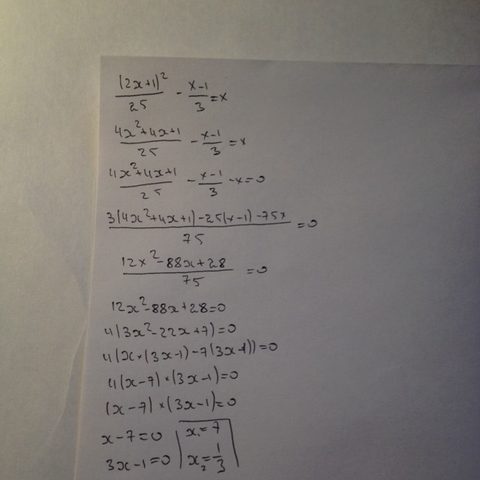 (2x+1)²/25 - (x-1)/3 = x
(4x²+4x+1)/25 - (x-1)/3 = x
(4x²+4x+1)/25 - (x-1)/3 - x = 0
(3(4x²+4x+1)-25(x-1)-75x)/75 = 0
(12x²-88x+28)/75 = 0
12x²-88x+28=0
4(3x²-22x+7)=0
4(x×(3x-1)-7(3x-1))=0
4(x-7)×(3x-1)=0
(x-7)×(3x-1)=0
x-7=0 x₁=7
3x-1=0 x₂=1/3